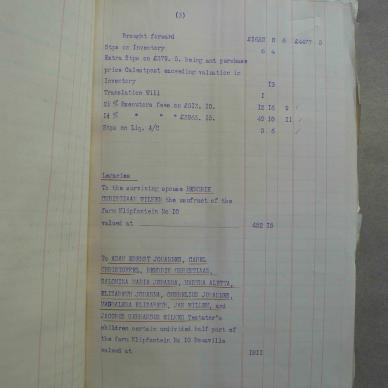 (3)
Brought forward £1622 8 6 £4477 0
Stps on Inventory 6 4
Extra Stps on £379. 0. being amt purchase
price exceeding valuation in
Inventory 13
Translation Will 1
2½ % Executors fees on 10. 12 16 9
" " " 10. 10 11
Stps on Liq. A/C 6
Legacies
To the surviving spouse HENDRIK
CHRISTIAAN WILKEN the usufruct of the
farm Klipfontein No 10
valued at 452 15
To ADAM ERNST JOHANNES, CAREL
CHRISTOFFEL, HENDRIK CHRISTIAAN,
SALOMINA MARIA JOHANNA, MARTHA ALETTA,
ELIZABETH JOHANNA, CORNELIUS JOHANNES,
MAGDALENA ELIZABETH, JAN WILKEN, and
JACOBUS GERHARDUS WILKEN Testator's
children certain undivided half part of
the farm Klipfontein No 10
valued at 1811